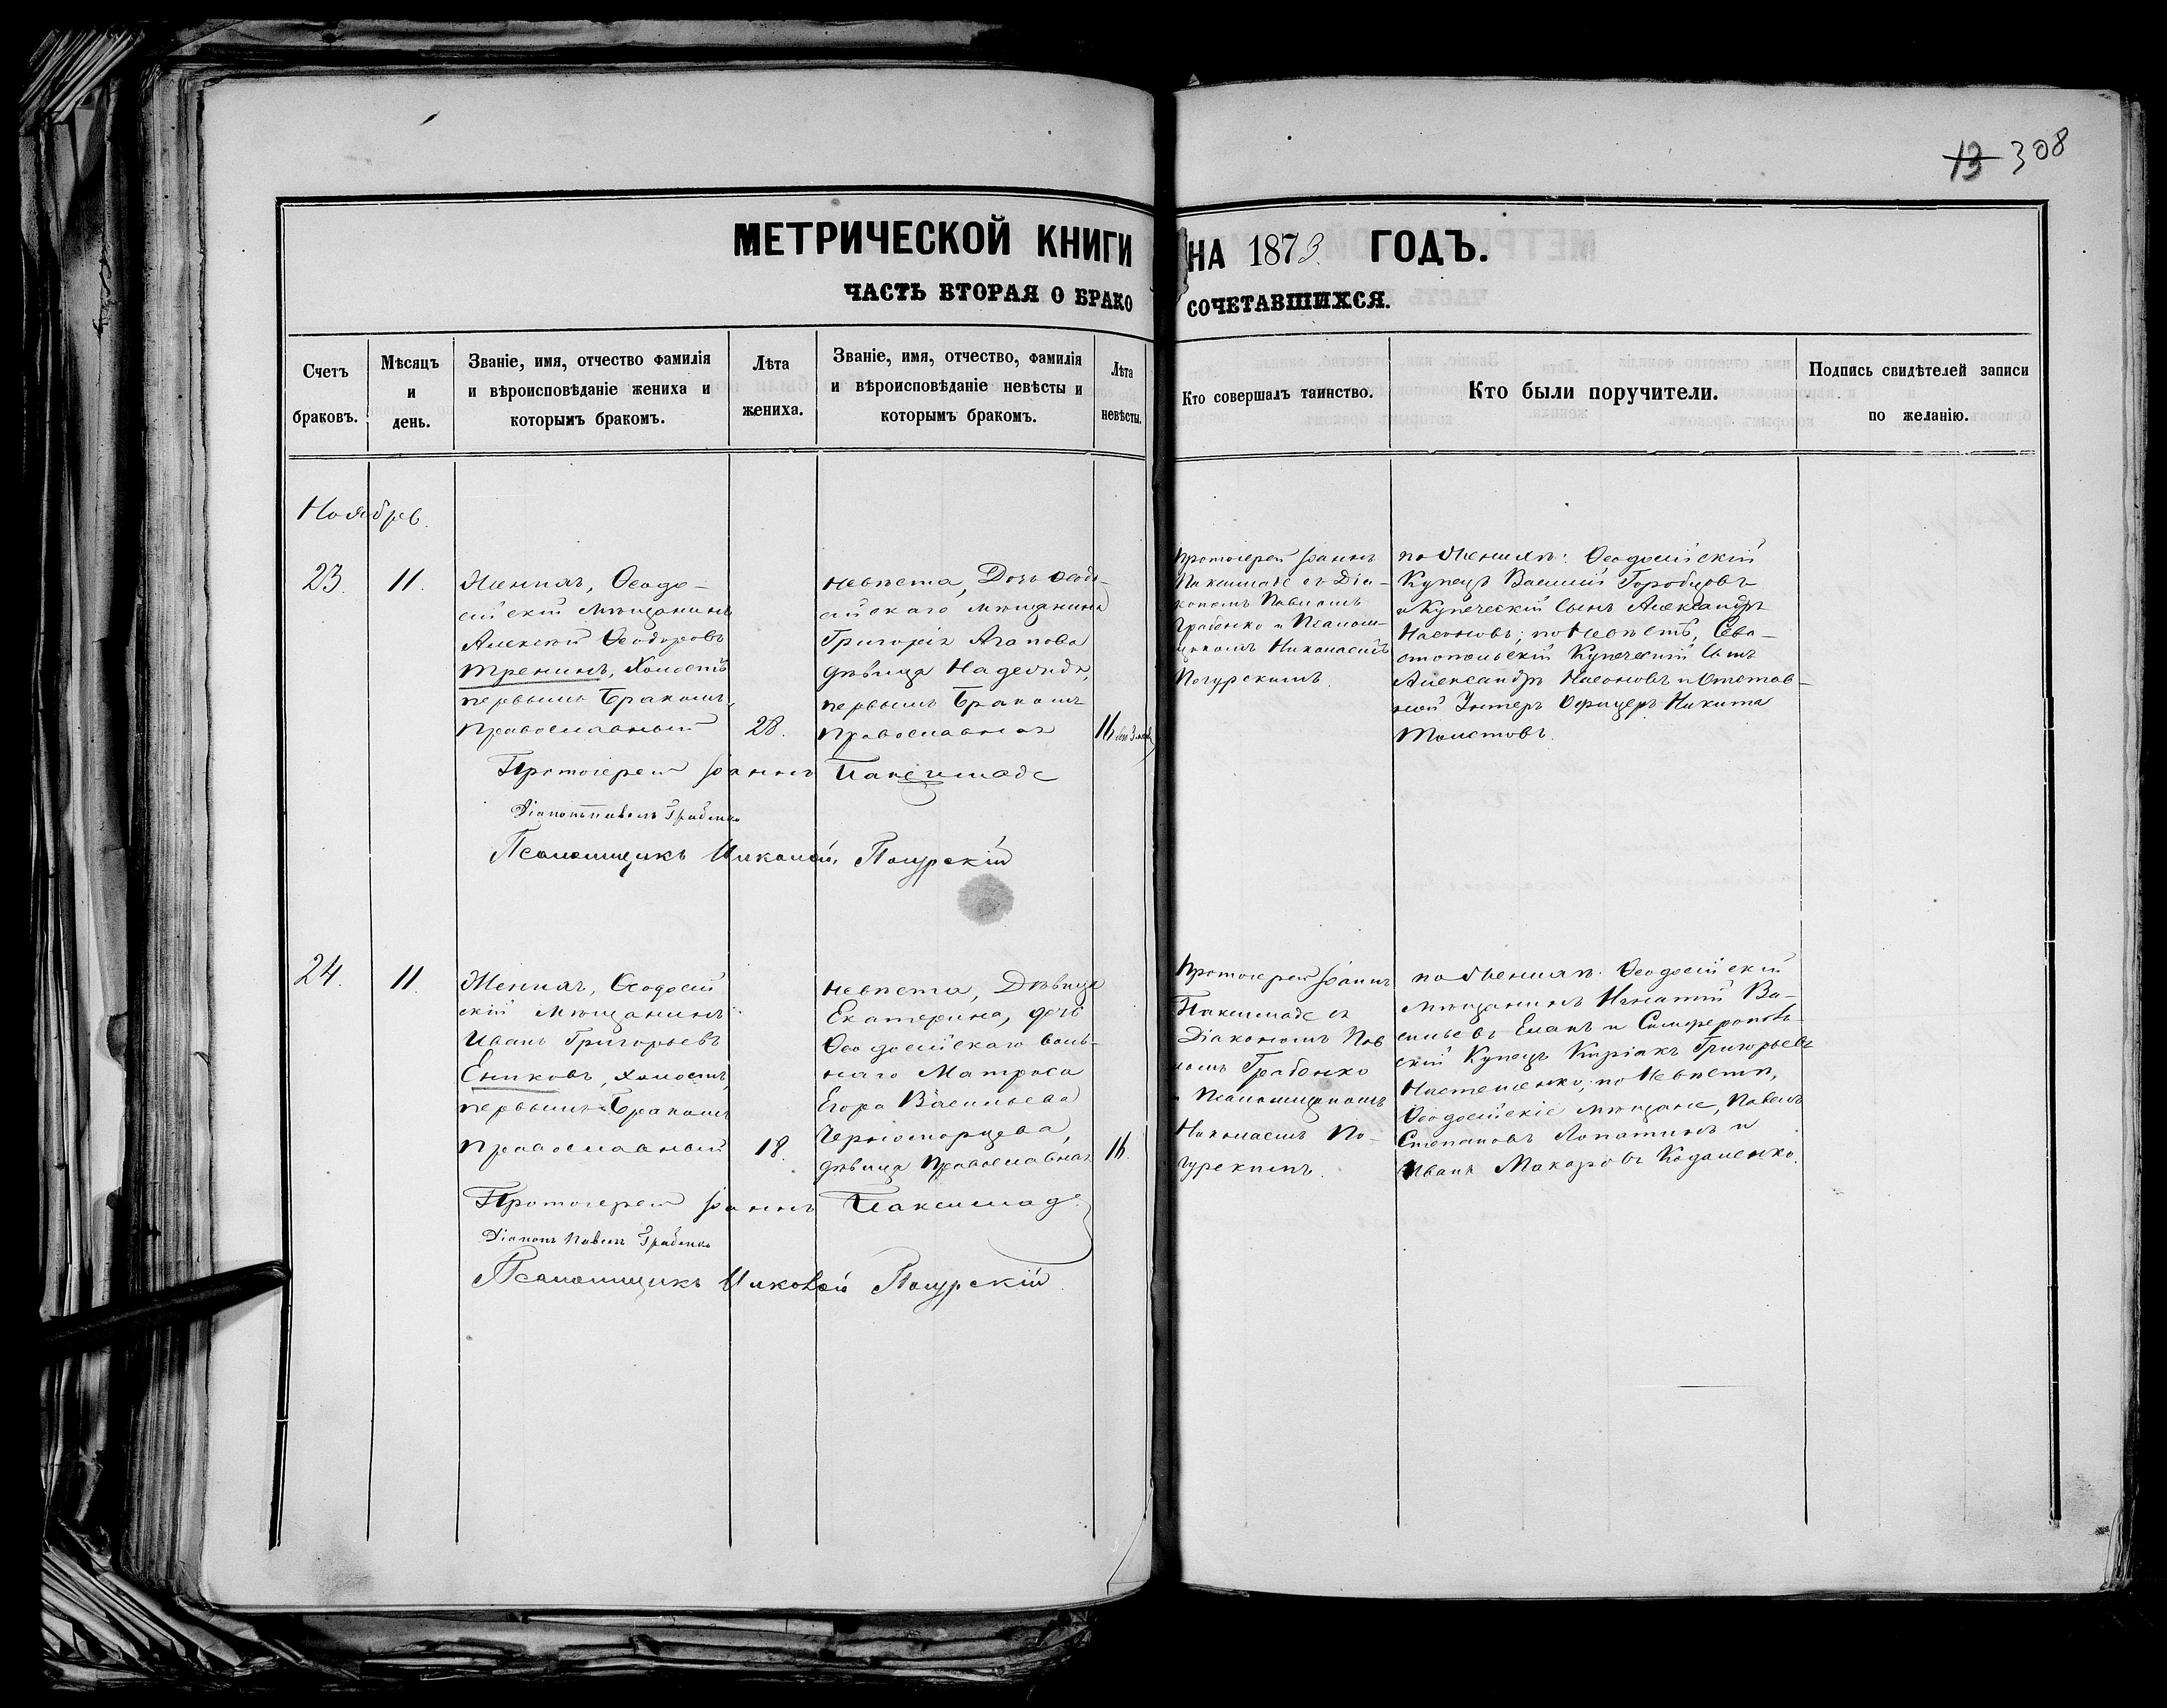 13 308
МЕТРИЧЕСКОЙ КНИГИ НА 1873 ГОДЪ.
ЧАСТЬ ВТОРАЯ О БРАКОСОЧЕТАВШИХСЯ.
Счетъ браковъ.
Мѣсяцъ и день.
Званіе, имя, отчество фамилія
и вѣроисповѣданіе жениха и
которымъ бракомъ.
Лѣта жениха.
Званіе, имя, отчество, фамилія
и вѣроисповѣданіе невѣсты и
которымъ бракомъ.
Лѣта невѣсты.
Кто совершалъ таинство.
Кто были поручители.
Подпись свидѣтелей записи
по желанію.
Ноябрь.
23.
11.
Женихъ, Ѳеодо-
сійскій мѣщанинъ
Алексѣй Ѳеодоровъ
Тренинъ, холостъ
первымъ бракомъ,
православный
28.
Невѣста, Дочь Ѳеодо-
сійскаго мѣщанина
Григорія Агапова
дѣвица Надежда,
первымъ бракомъ
православная
16
Протоіерей Іоаннъ
Паксимаде съ Діа-
кономъ Павломъ
Грабенко и Псалом-
щикомъ Николаемъ
Погурскимъ.
по женихѣ: Ѳеодосійскій
Купецъ Василій Горобцовъ
и Купеческій Сынъ Александръ
Насоновъ; по невѣстѣ, Сева-
стопольскій Купеческій Сынъ
Александръ Насоновъ и отстав-
ной Унтеръ Офицеръ Никита
Толстовъ.
Протоіерей Іоаннъ Паксимаде
Діаконъ Павелъ Грабенко
Псаломщикъ Николай Погурскій
24.
11.
Женихъ, Ѳеодосій
скій мѣщанинъ
Иванъ Григорьевъ
Ениковъ, холостъ,
первымъ бракомъ
православный
18.
Невѣста, Дѣвица
Екатерина, дочь
Ѳеодосійскаго воль-
наго Матроса
Егора Васильева
Черноморцева,
дѣвица православная
16.
Протоіерей Іоаннъ
Паксимаде съ
Діакономъ Пав
ломъ Грабенко
и Псаломщикомъ
Николаемъ По-
гурскимъ.
по женихѣ: Ѳеодосійскій
мѣщанинъ Игнатій Ва-
сильевъ Еланъ и Симферополь
скій Купецъ Киріакъ Григорьевъ
Настеленко, по невѣстѣ,
Ѳеодосійскіе мѣщане, Павелъ
Степановъ Лопатинъ и
Иванъ Макаровъ Кодаленко.
Протоіерей Іоаннъ Паксимаде
Діаконъ Павелъ Грабенко
Псаломщикъ Николай Погурскій